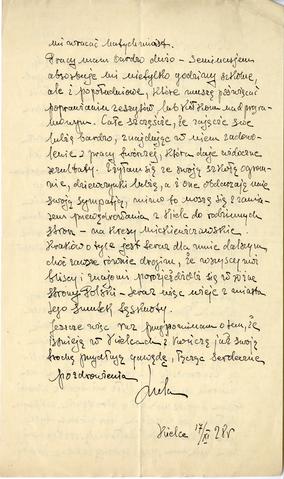 mi wracać natychmiast.
Pracy mam bardzo dużo – Seminarjum
absorbuje mi nietylko godziny szkolne,
ale i popołudniowe, które muszę poświęcać
poprawianiu zeszytów lub kółkom nadprogra-
mowym. Całe szczęście, że zajęcie swe
lubię bardzo, znajdując w niem zadowo-
lenie z pracy twórczej, która daje widoczne
rezultaty. Zżyłam się ze swoją szkołą ogrom-
nie, dziewczynki lubię, a i one obdarzają mię
swoją sympatją, mimo to noszę się z zamia-
rem powędrowania z Kielc do rodzinnych
stron – na Kresy Mickiewiczowskie.
Kraków o tyle jest teraz dla mnie dalszym
choć zawsze równie drogim, że wszyscy moi
bliscy i znajomi porozjeżdżali się w różne
strony Polski – teraz więc wieje z miasta
tego smutek tęsknoty.
Jeszcze więc raz przypominam o tem, że
istnieję w Kielcach i kończę już swoją
trochę przydługą gawędę, łącząc serdeczne
pozdrowienia
Kielce 17/XI 28r